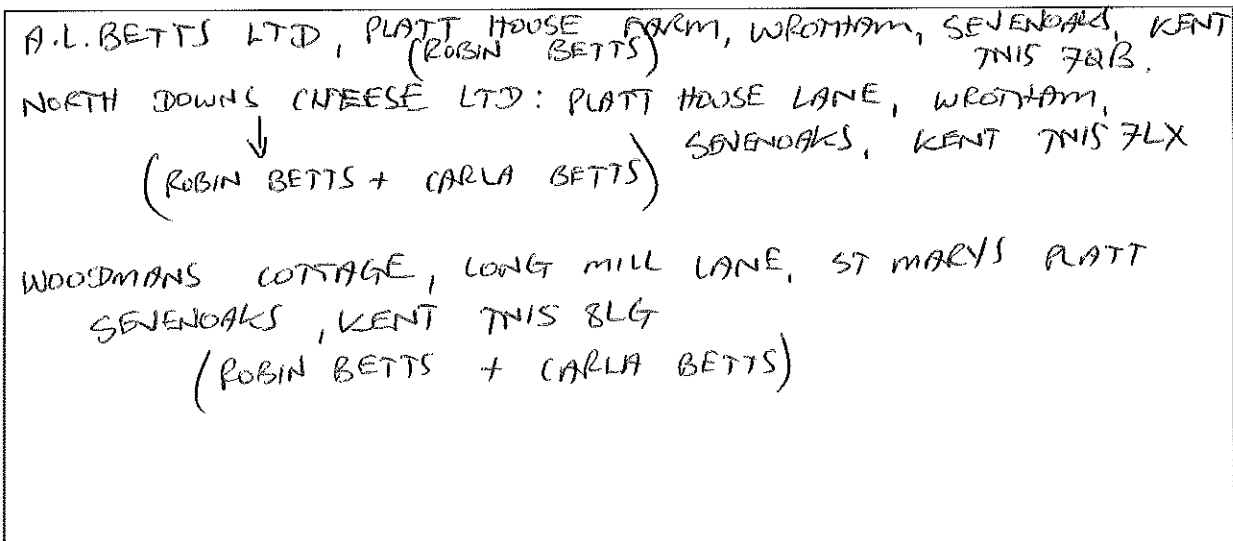 A.L.BETTS LTD, PLATT HOUSE FARM, WROTHAM, SEVENOAKS, KENT
(ROBIN BETTS) TN15 7QB.
NORTH DOWNS CHEESE LTD: PLATT HOUSE LANE, WROTHAM,
SEVENOAKS, KENT TN15 7LX
(ROBIN BETTS + CARLA BETTS)
WOODMANS COTTAGE, LONG MILL LANE, ST MARYS PLATT
SEVENOAKS, KENT TN15 8LG
(ROBIN BETTS + CARLA BETTS)